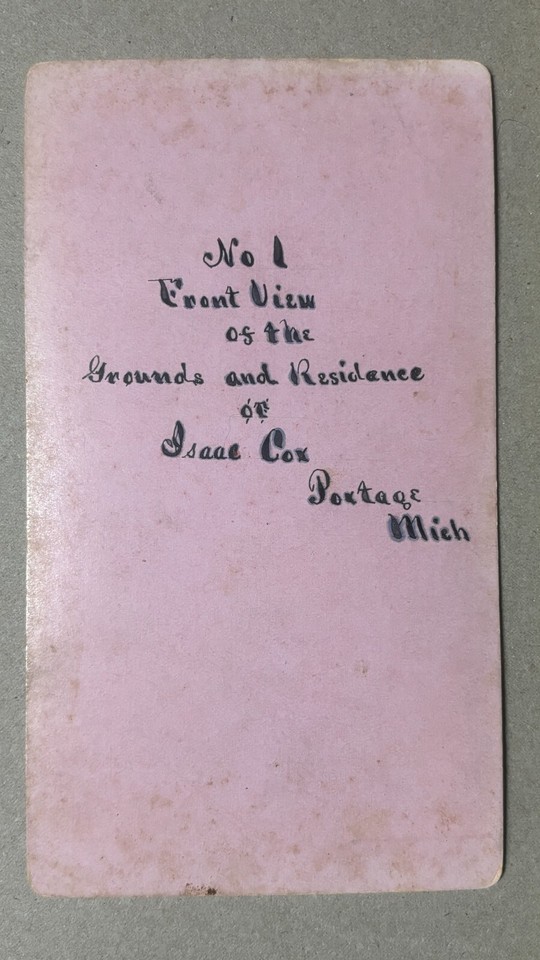 No 1
Front View
of the
Grounds and Residence
of
Isaac Cox
Portage
Mich